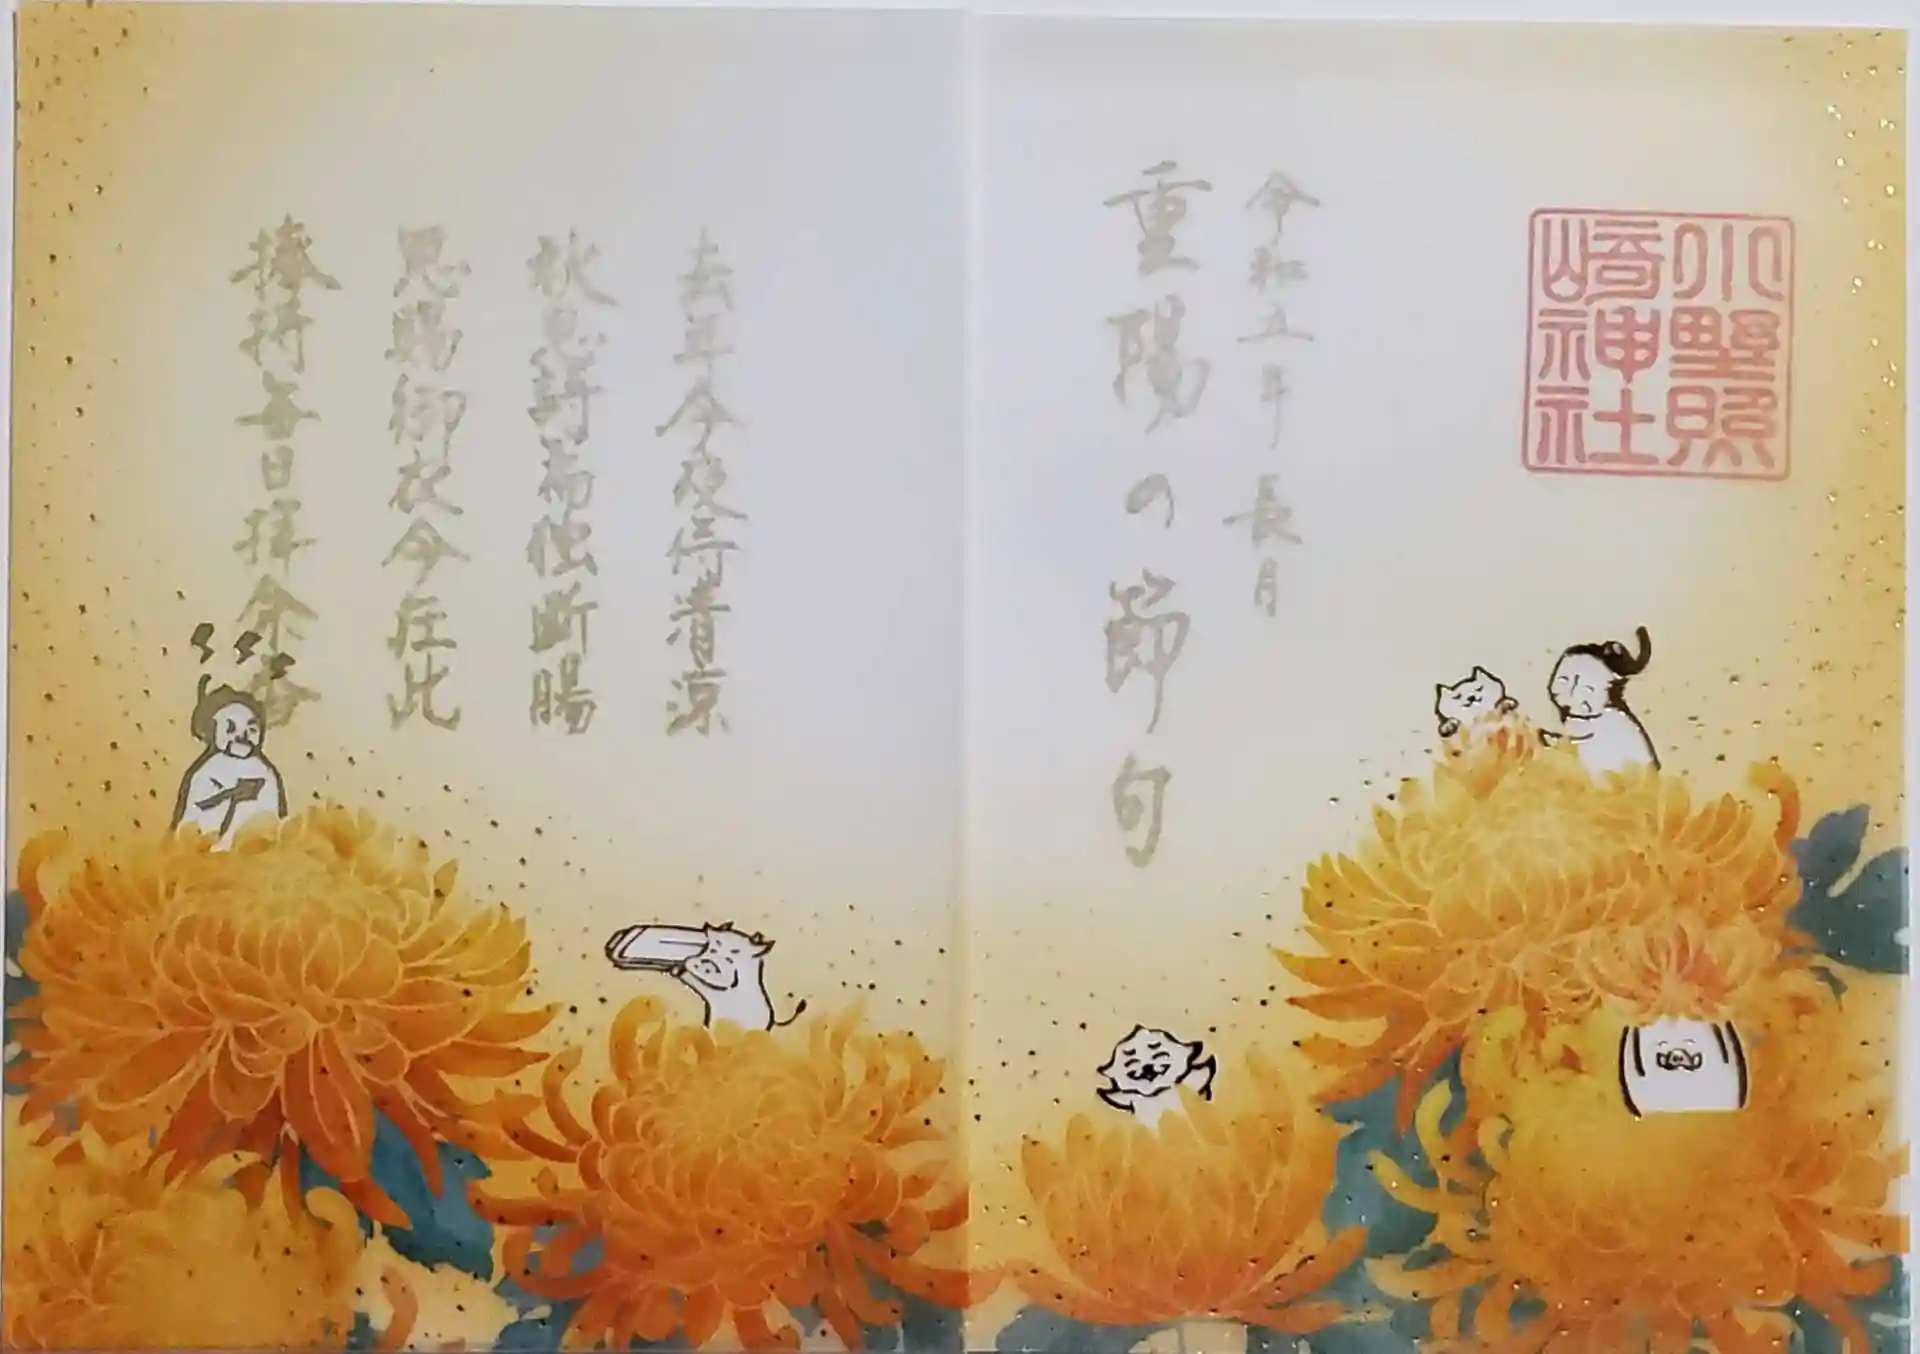 小野照
崎神社
令和五年長月
重陽の節句
去年今夜侍清涼
秋思詩篇独断腸
恩賜御衣今在此
捧持毎日拝余香